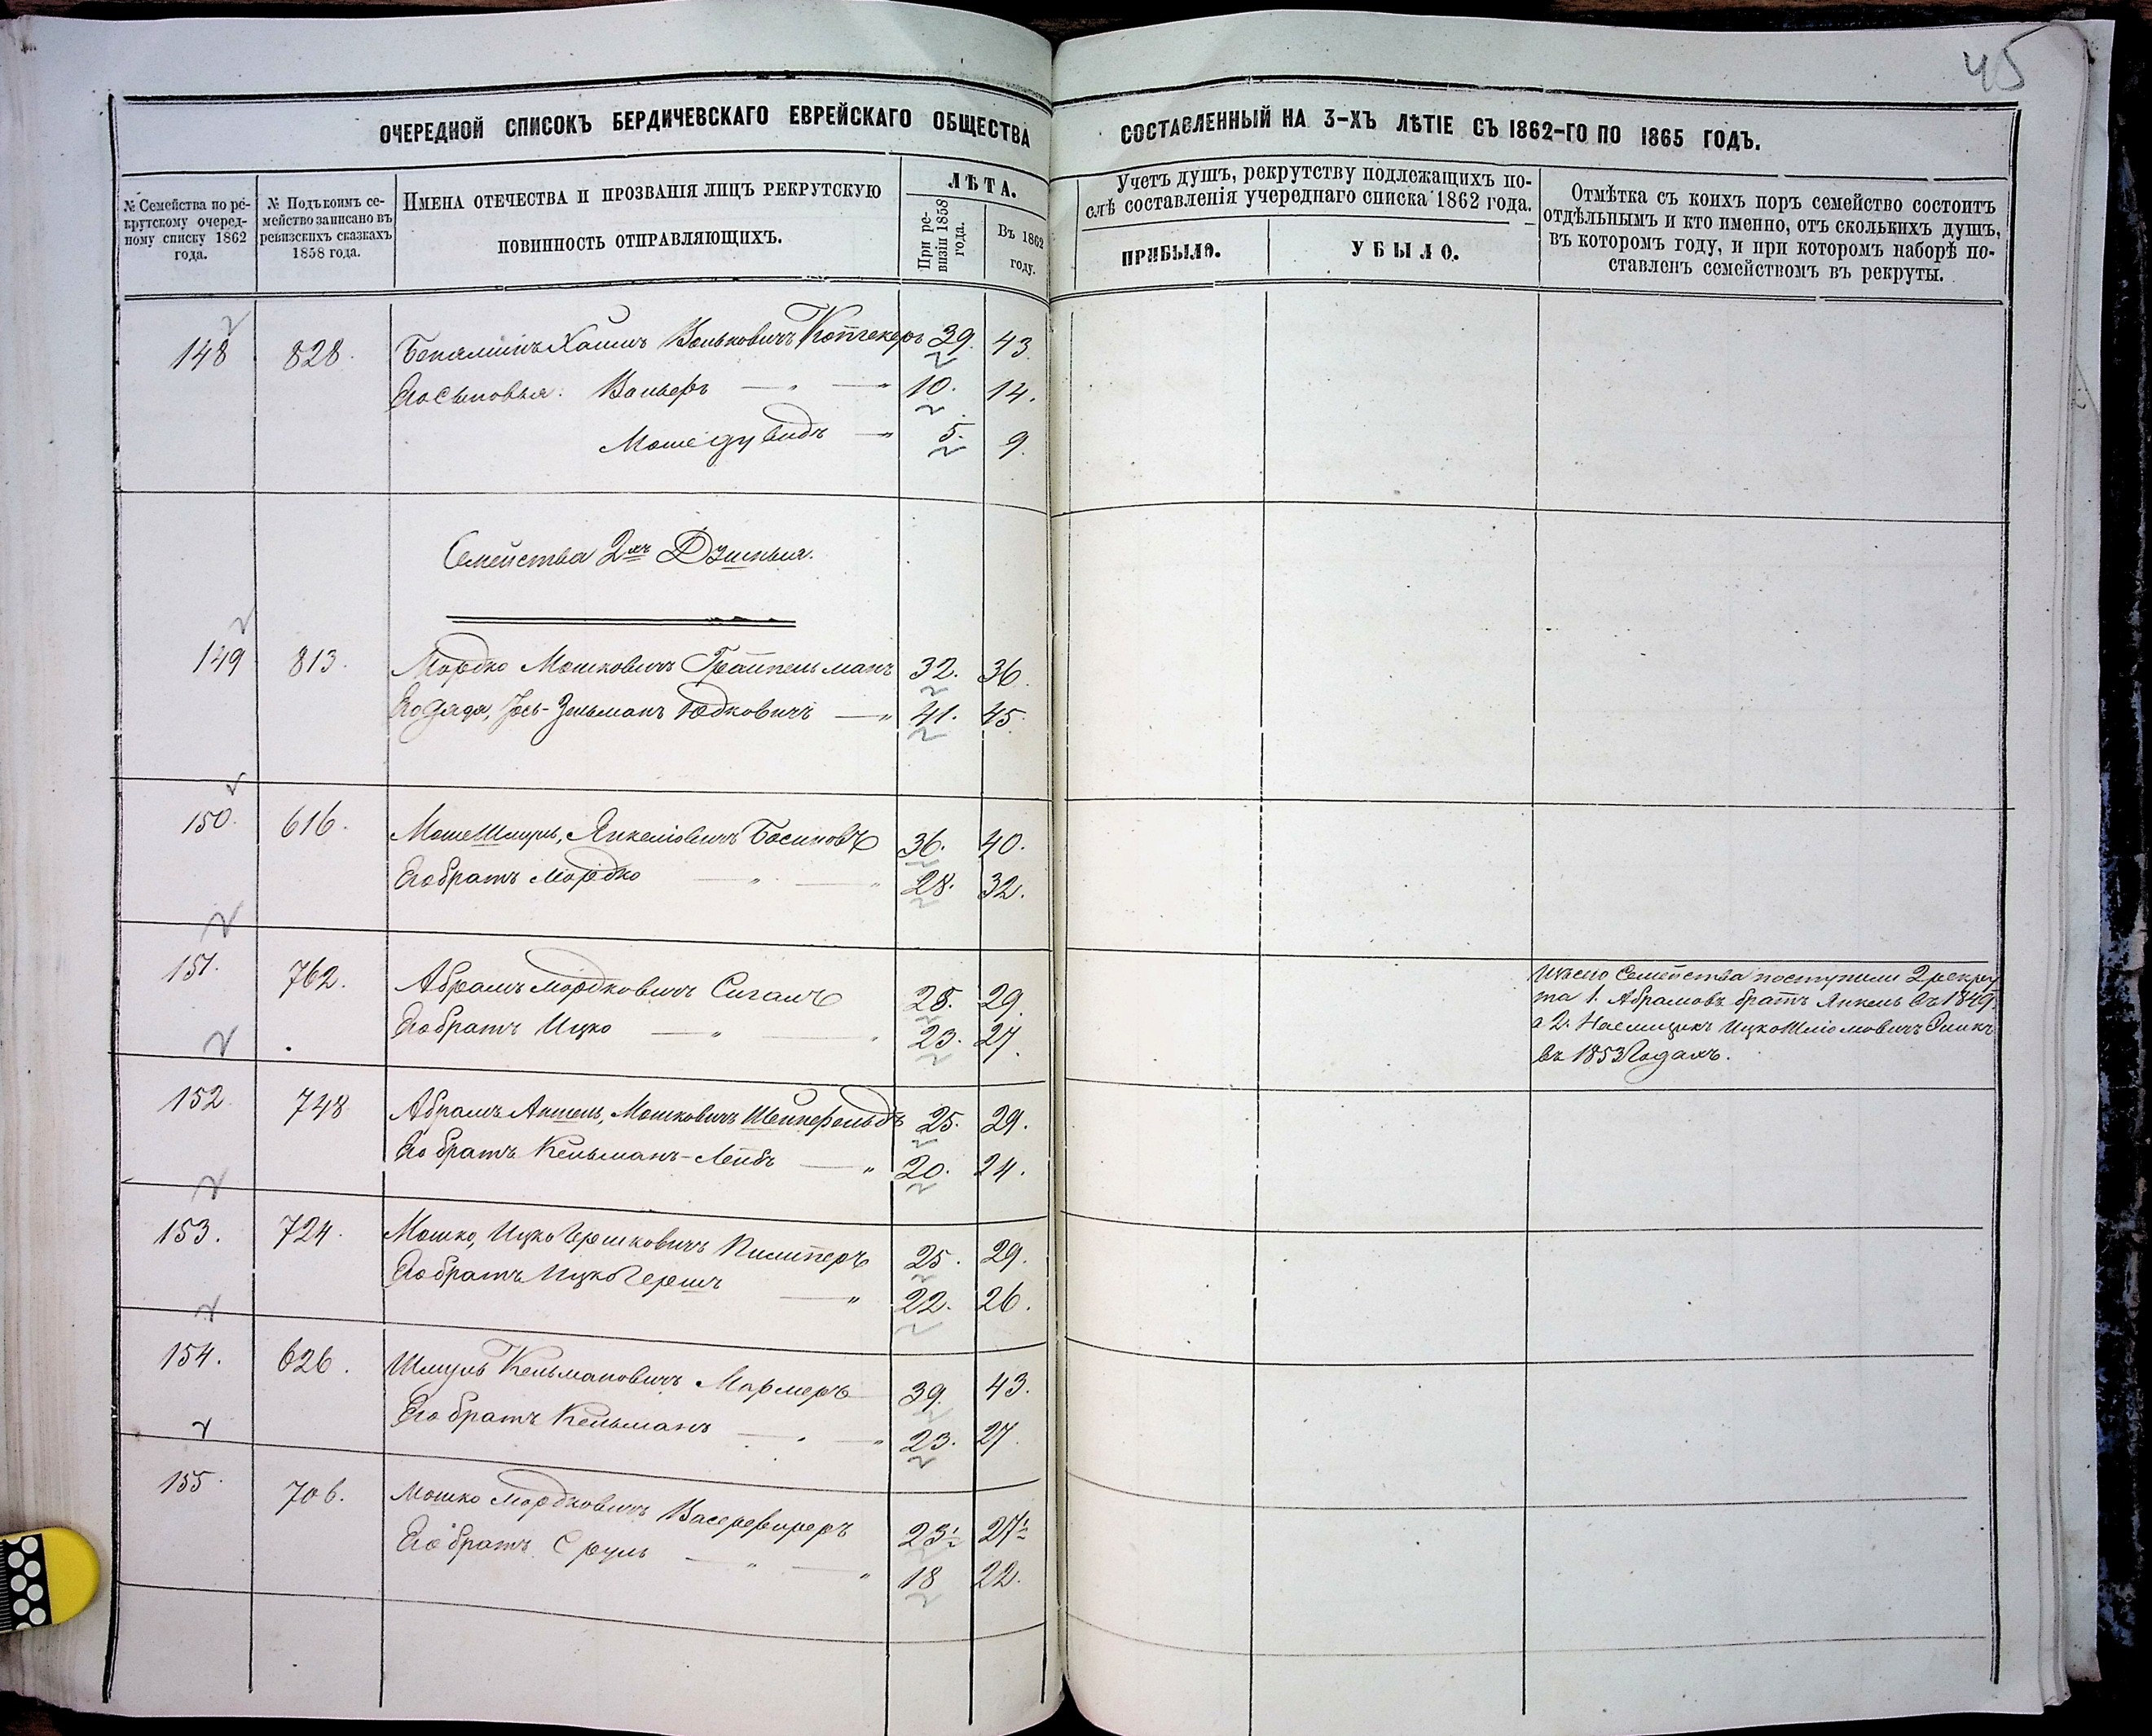 45
ОЧЕРЕДНОЙ СПИСОКЪ БЕРДИЧЕВСКАГО ЕВРЕЙСКАГО ОБЩЕСТВА СОСТАВЛЕННЫЙ НА 3-ХЪ ЛѢТІЕ СЪ 1862-ГО ПО 1865 ГОДЪ.
№ Семейства по рекрутскому очередному списку 1862 года.
№ Подъ коимъ семейство записано въ ревизскихъ сказкахъ 1858 года.
ИМЕНА ОТЕЧЕСТВА И ПРОЗВАНІЯ ЛИЦЪ РЕКРУТСКУЮ
ПОВИННОСТЬ ОТПРАВЛЯЮЩИХЪ.
ЛѢТА.
При ревизіи 1858 года.
Въ 1862 году.
Учетъ душъ, рекрутству подлежащихъ по-
слѣ составленія учереднаго списка 1862 года.
ПРИБЫЛО.
УБЫЛО.
Отмѣтка съ коихъ поръ семейство состоитъ
отдѣльнымъ и кто именно, отъ сколькихъ душъ,
въ котором году, и при котором наборѣ по-
ставленъ семействомъ въ рекруты.
148 828. Беняминъ Хаимъ Вольковичъ 39. 43.
Его сыновья: Вольфъ — " — " 10. 14.
Моше Дувидъ — " 5. 9.
Семейства 2хъ
149 813. Мордко Мошковичъ 32. 36.
Его дядя, Іось-Зельманъ Юдковичъ — " 41. 45.
150. 616. Моше Шмуль, Янкеліовичъ 36. 40.
Его братъ Мордко — " — " 28. 32.
151. 762. Абрамъ Мордковичъ Сигалъ 28. 29.
Его братъ Ицко — " — " 23. 27.
Изъ сего Семейства поступили 2 рекру
та 1. Абрамовъ братъ Янкель въ 1849
а 2. Наемщикъ Ицко Шліомовичъ
въ 1853 Годахъ.
152 748 Абрамъ Аншель, Мошковичъ Шейнфельдъ 25. 29.
Его братъ Кельманъ-Лейбъ — " 20. 24.
153. 724. Мошко, Ицко Гершковичъ 25. 29.
Его братъ Ицко Гершъ — " 22. 26.
154. 626. Шмуль Кельмановичъ Мармеръ 39. 43.
Его братъ Кельманъ — " — " 23. 27.
155. 706. Мошко Мордковичъ 23. 27.
Его братъ Сруль — " — " 18 22.